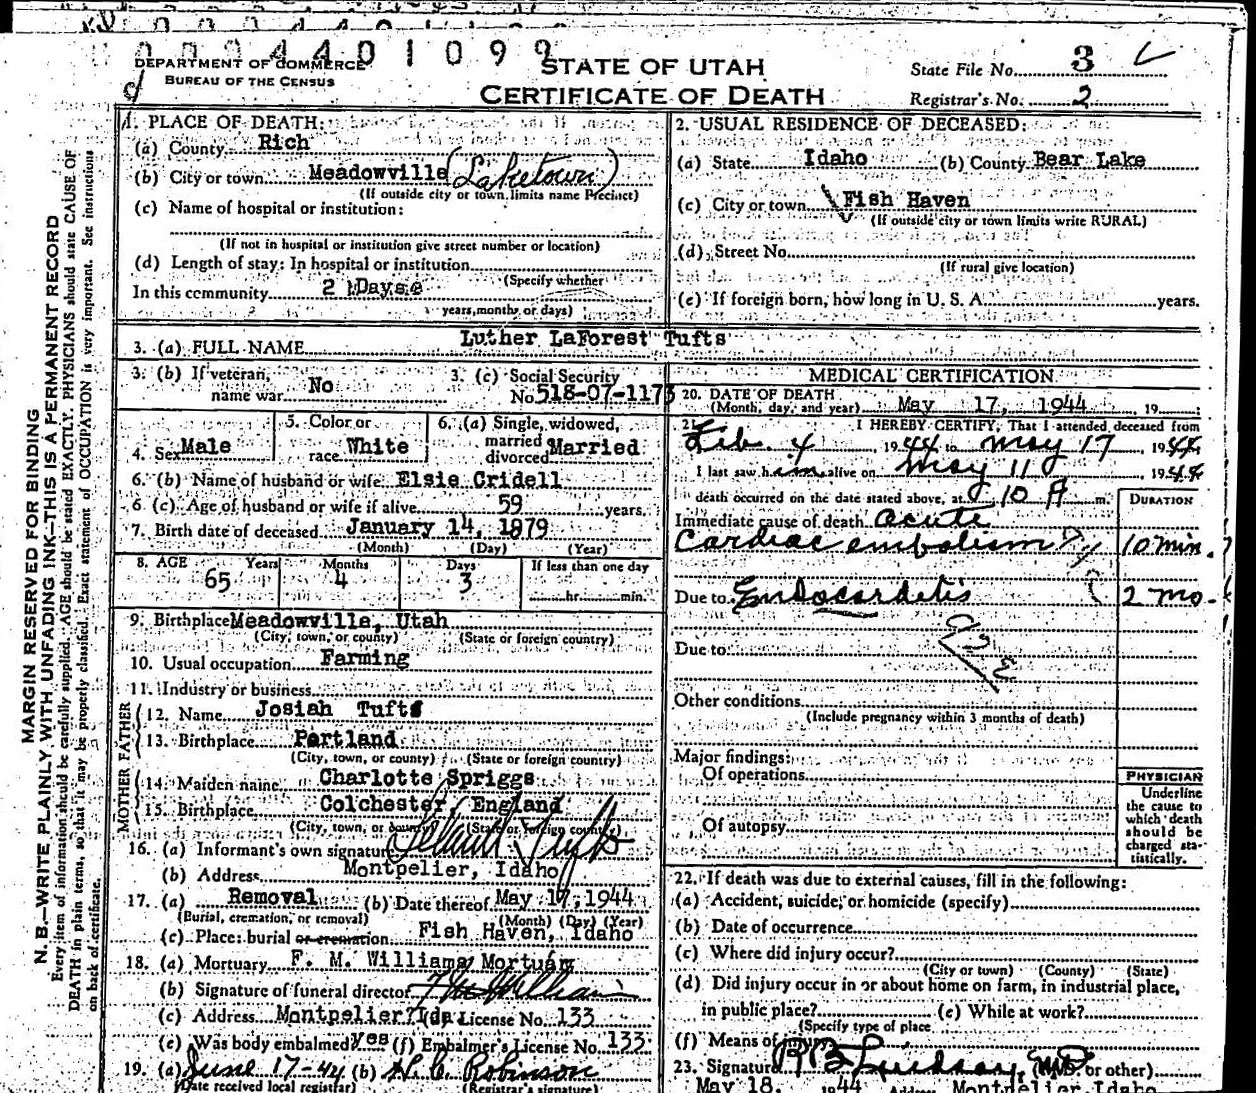 0 0 4 4 0 1 0 9 9
DEPARTMENT OF COMMERCE
BUREAU OF THE CENSUS
STATE OF UTAH
CERTIFICATE OF DEATH
State File No. 3
Registrar's No. 2
MARGIN RESERVED FOR BINDING
N. B.—WRITE PLAINLY WITH UNFADING INK—THIS IS A PERMANENT RECORD
Every item of information should be carefully supplied. AGE should be stated EXACTLY. PHYSICIANS should state CAUSE OF
DEATH in plain terms, so that it may be properly classified. Exact statement of OCCUPATION is very important. See instructions
on back of certificate.
1. PLACE OF DEATH:
(a) County Rich
(b) City or town Meadowville (Laketown)
(If outside city or town limits name Precinct)
(c) Name of hospital or institution:
(If not in hospital or institution give street number or location)
(d) Length of stay: In hospital or institution
(Specify whether
In this community 2 Days
years, months or days)
2. USUAL RESIDENCE OF DECEASED:
(a) State Idaho (b) County Bear Lake
(c) City or town Fish Haven
(If outside city or town limits write RURAL)
(d) Street No.
(If rural give location)
(e) If foreign born, how long in U. S. A. years.
3. (a) FULL NAME Luther LaForest Tufts
3. (b) If veteran, name war No
3. (c) Social Security No. 518-07-1173
4. Sex Male
5. Color or race White
6. (a) Single, widowed, married divorced Married
6. (b) Name of husband or wife Elsie Cridell
6 (c) Age of husband or wife if alive 59 years,
7. Birth date of deceased January 14, 1879
(Month) (Day) (Year)
8. AGE Years Months Days If less than one day
65 4 3 hr. min.
9. Birthplace Meadowville, Utah
(City, town, or county) (State or foreign country)
10. Usual occupation Farming
11. Industry or business
FATHER
12. Name Josiah Tufts
13. Birthplace Portland
(City, town, or county) (State or foreign country)
MOTHER
14. Maiden name Charlotte Spriggs
15. Birthplace Colchester, England
(City, town, or county) (State or foreign country)
16. (a) Informant's own signature Tufts
(b) Address Montpelier, Idaho
17. (a) Removal (b) Date thereof May 17, 1944
(Burial, cremation, or removal) (Month) (Day) (Year)
(c) Place: burial or cremation Fish Haven, Idaho
18. (a) Mortuary F. M. Williams Mortuary
(b) Signature of funeral director F M William
(c) Address Montpelier, Ida License No. 133
(e) Was body embalmed? Yes (f) Embalmer's License No. 133
19. (a) June 17-44 (b) H. C. Robinson
(Date received local registrar) (Registrar's signature)
MEDICAL CERTIFICATION
20. DATE OF DEATH
(Month, day, and year) May 17, 1944, 19
21. I HEREBY CERTIFY, That I attended deceased from
Feb. 4, 1944 to May 17, 1944,
I last saw him alive on May 11, 1944
death occurred on the date stated above, at 10 A m.
DURATION
Immediate cause of death Acute
Cardiac embolism 10 min.
Due to Endocardetis 2 mo.
Due to
92
Other conditions
(Include pregnancy within 3 months of death)
Major findings:
Of operations
Of autopsy
PHYSICIAN
Underline
the cause to
which death
should be
charged sta-
tistically.
22. If death was due to external causes, fill in the following:
(a) Accident, suicide, or homicide (specify)
(b) Date of occurrence
(c) Where did injury occur?
(City or town) (County) (State)
(d) Did injury occur in or about home on farm, in industrial place,
in public place? (e) While at work?
(Specify type of place
(f) Means of injury
23. Signature R B Lindsay, MD (M.D. or other)
May 18, 1944 Address Montpelier, Idaho